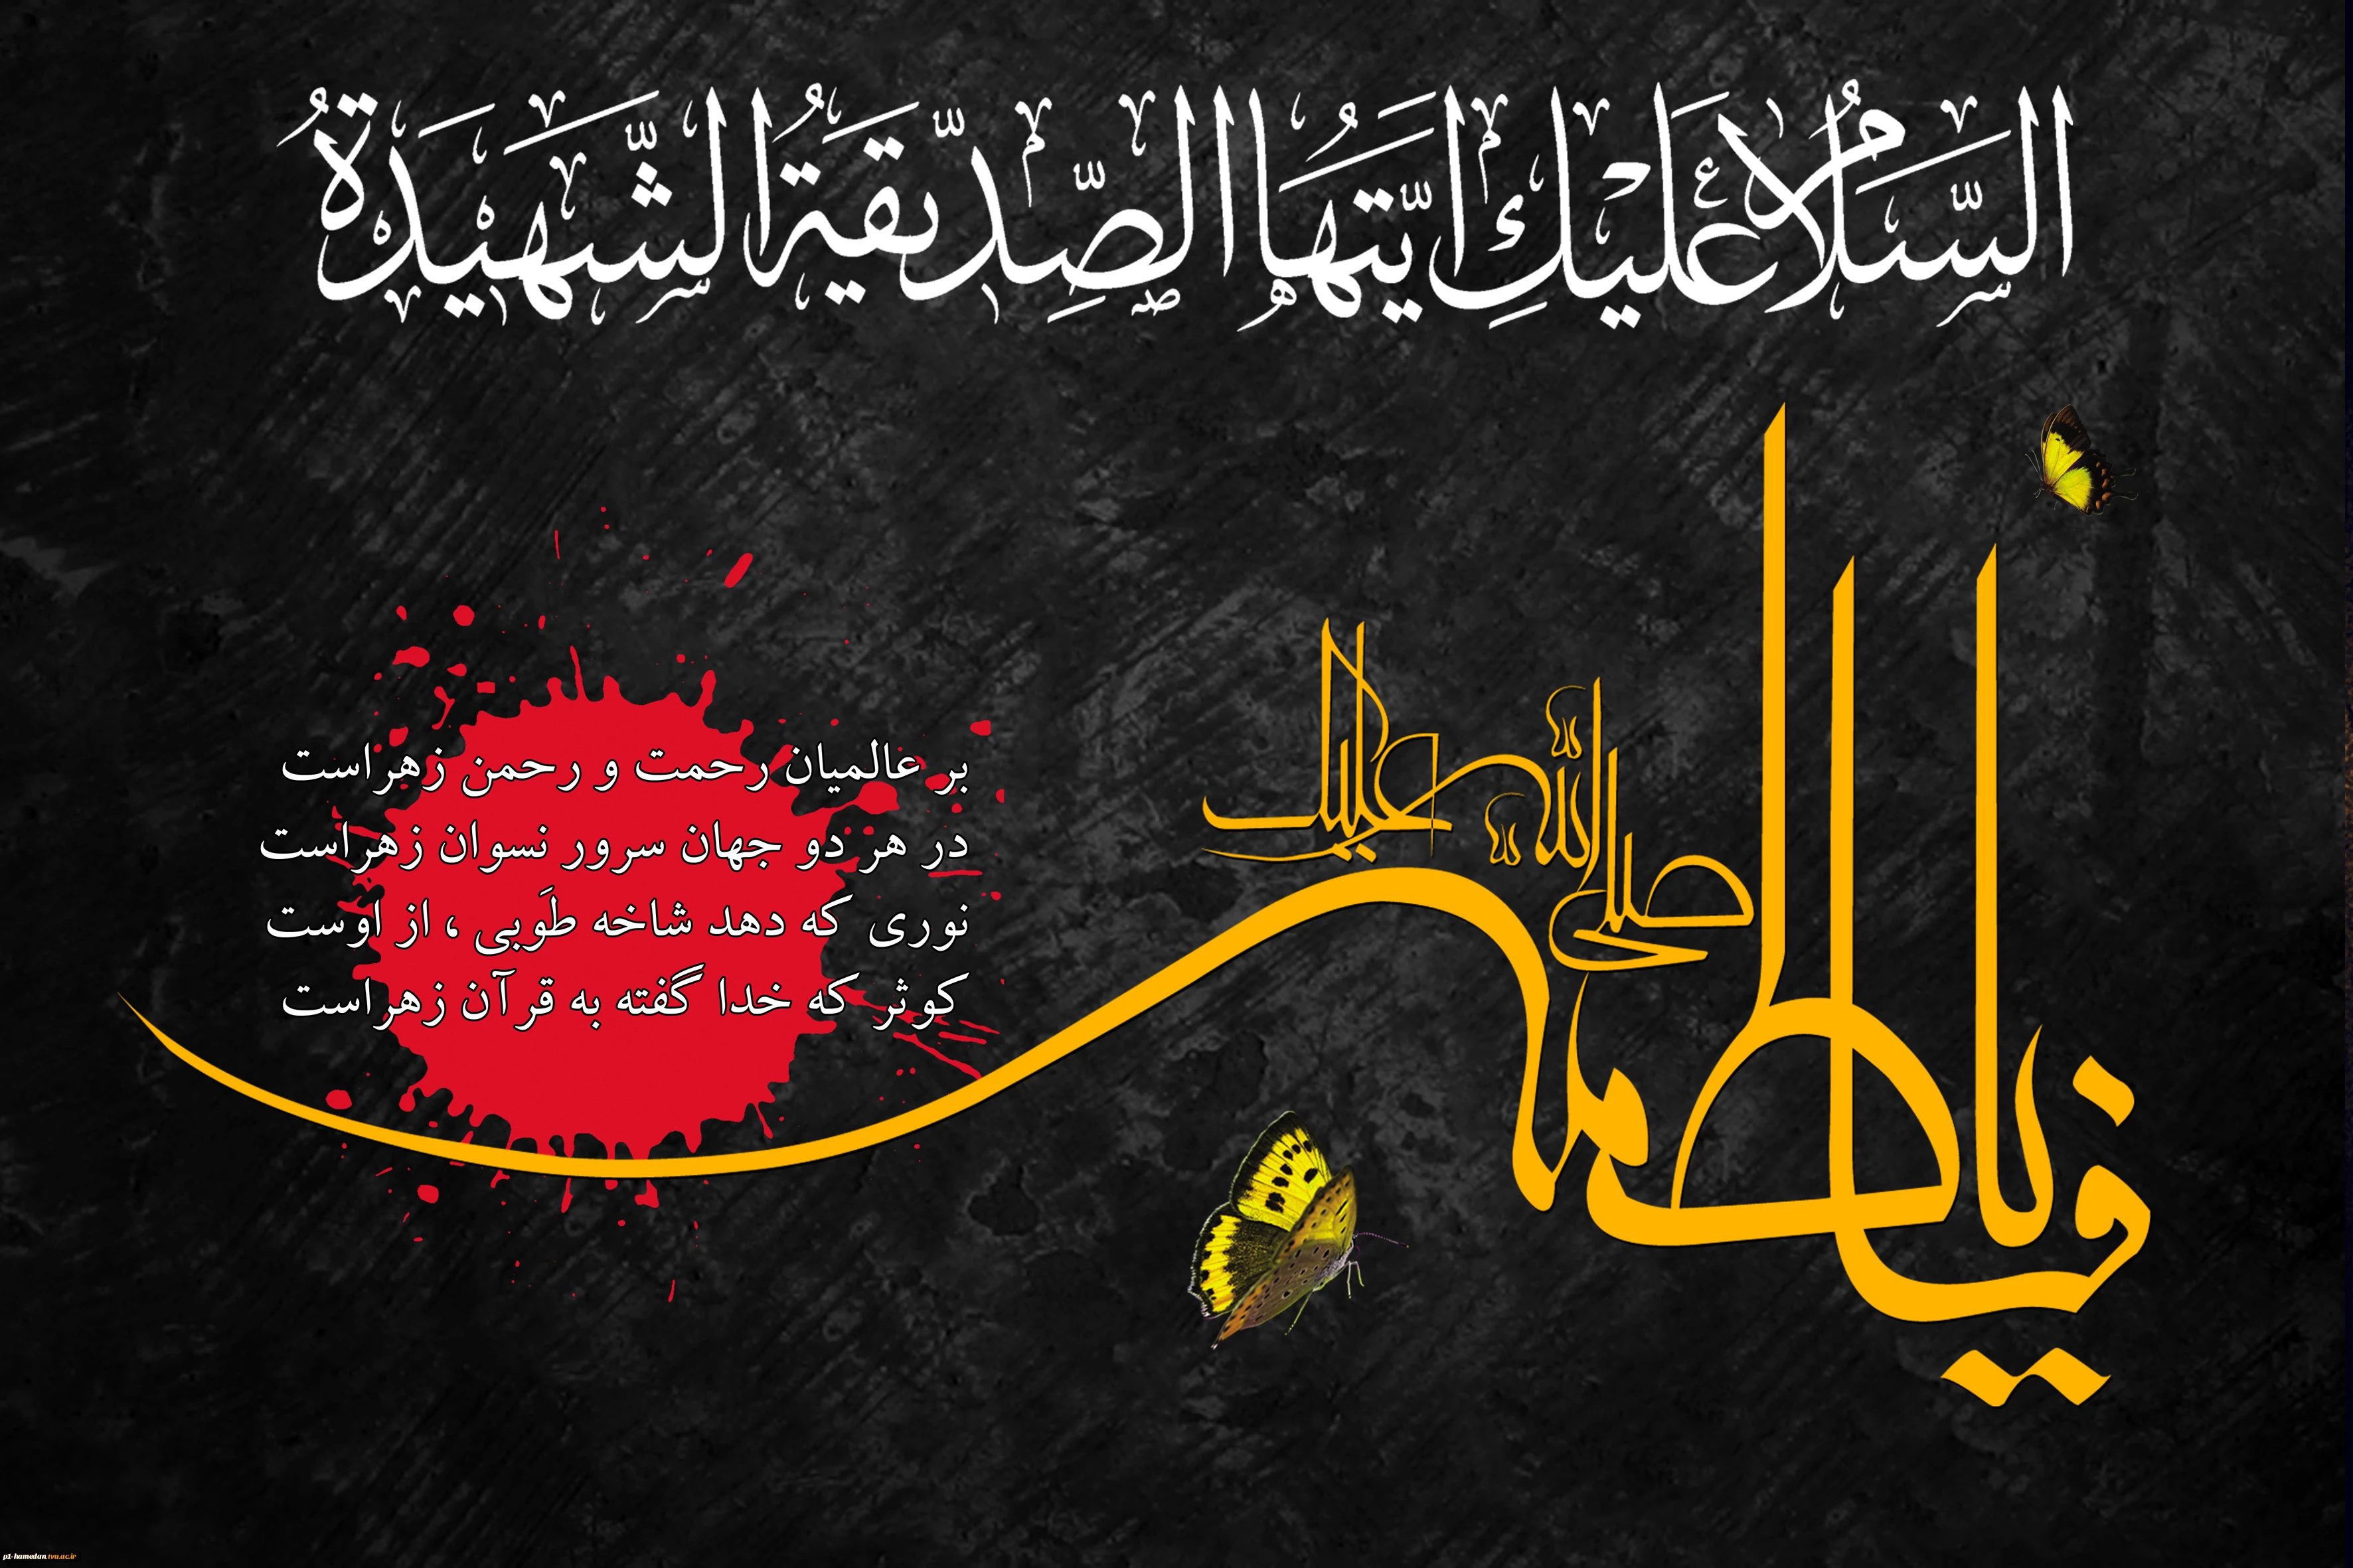 السَّلَامُ عَلَيْكِ اَيَّتُهَا الصِّدّيقَةُ الشَّهيْدَةُ
صلی الله علیک
یا فاطمه
بر عالمیان رحمت و رحمن زهراست
در هر دو جهان سرور نسوان زهراست
نوری که دهد شاخه طَوبی ، از اوست
کوثر که خدا گفته به قرآن زهراست
p1-hamedan.tvu.ac.ir